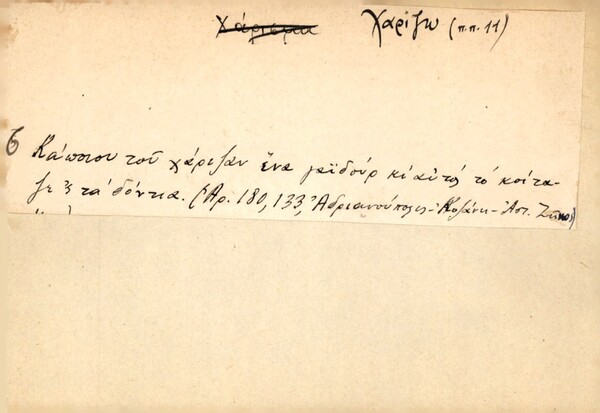 Χάρισμα Χαρίζω (π.π. 11)
6 Κάποιου τοῦ χάριζαν ἕνα γαϊδούρ κι αὐτός τό κοίτα-
ζε ς τά δόντια. (Ἀρ. 180, 133, Ἀδριανούπολις - Κοζάνη - Ἀπ.